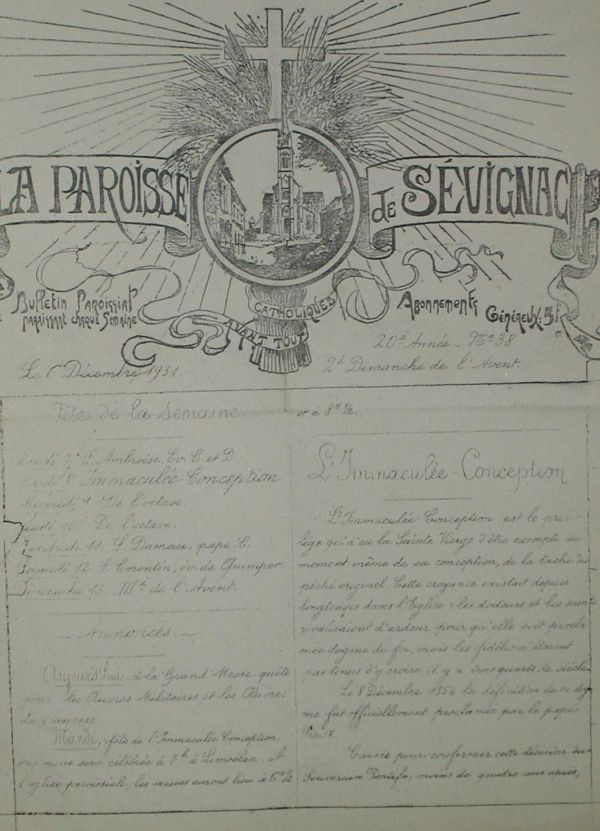 LA PAROISSE de SÉVIGNAC
Bulletin Paroissial
paraissant chaque Semaine
CATHOLIQUES
AVANT TOUT
Abonnements
Généreux: 5f
20e Année - No 38
Le 6 Décembre 1931.
2e Dimanche de l'Avent.
Fêtes de la Semaine
Lundi 7. S. Ambroise, Ev. C. et D.
Mardi 8. Immaculée-Conception
Mercredi 9. De l'octave.
Jeudi 10. De l'octave.
Vendredi 11. S. Damase, pape C.
Samedi 12. S. Corentin, év. de Quimper.
Dimanche 13. IIIe de l'Avent.
Annonces
Aujourd'hui, à la Grand'Messe quête
pour les Œuvres Militaires et les Œuvres
de Jeunesse.
Mardi, fête de l'Immaculée Conception
une messe sera célébrée à 7h à Limoëlan. A
l'église paroissiale, les messes auront lieu à 6h ½
et à 8h ½.
L'Immaculée-Conception
L'Immaculée Conception est le privi-
lège qu'a eu la Sainte Vierge d'être exempte au
moment même de sa conception, de la tache du
péché originel. Cette croyance existait depuis
longtemps dans l'Eglise: les docteurs et les saints
rivalisaient d'ardeur pour qu'elle soit procla-
mée dogme de foi, mais les fidèles n'étaient
pas tenus d'y croire il y a trois quarts de siècle.
Le 8 Décembre 1854 la définition de ce dog-
me fut officiellement proclamée par le pape
Pie IX.
Comme pour confirmer cette décision du
Souverain Pontife, moins de quatre ans après,